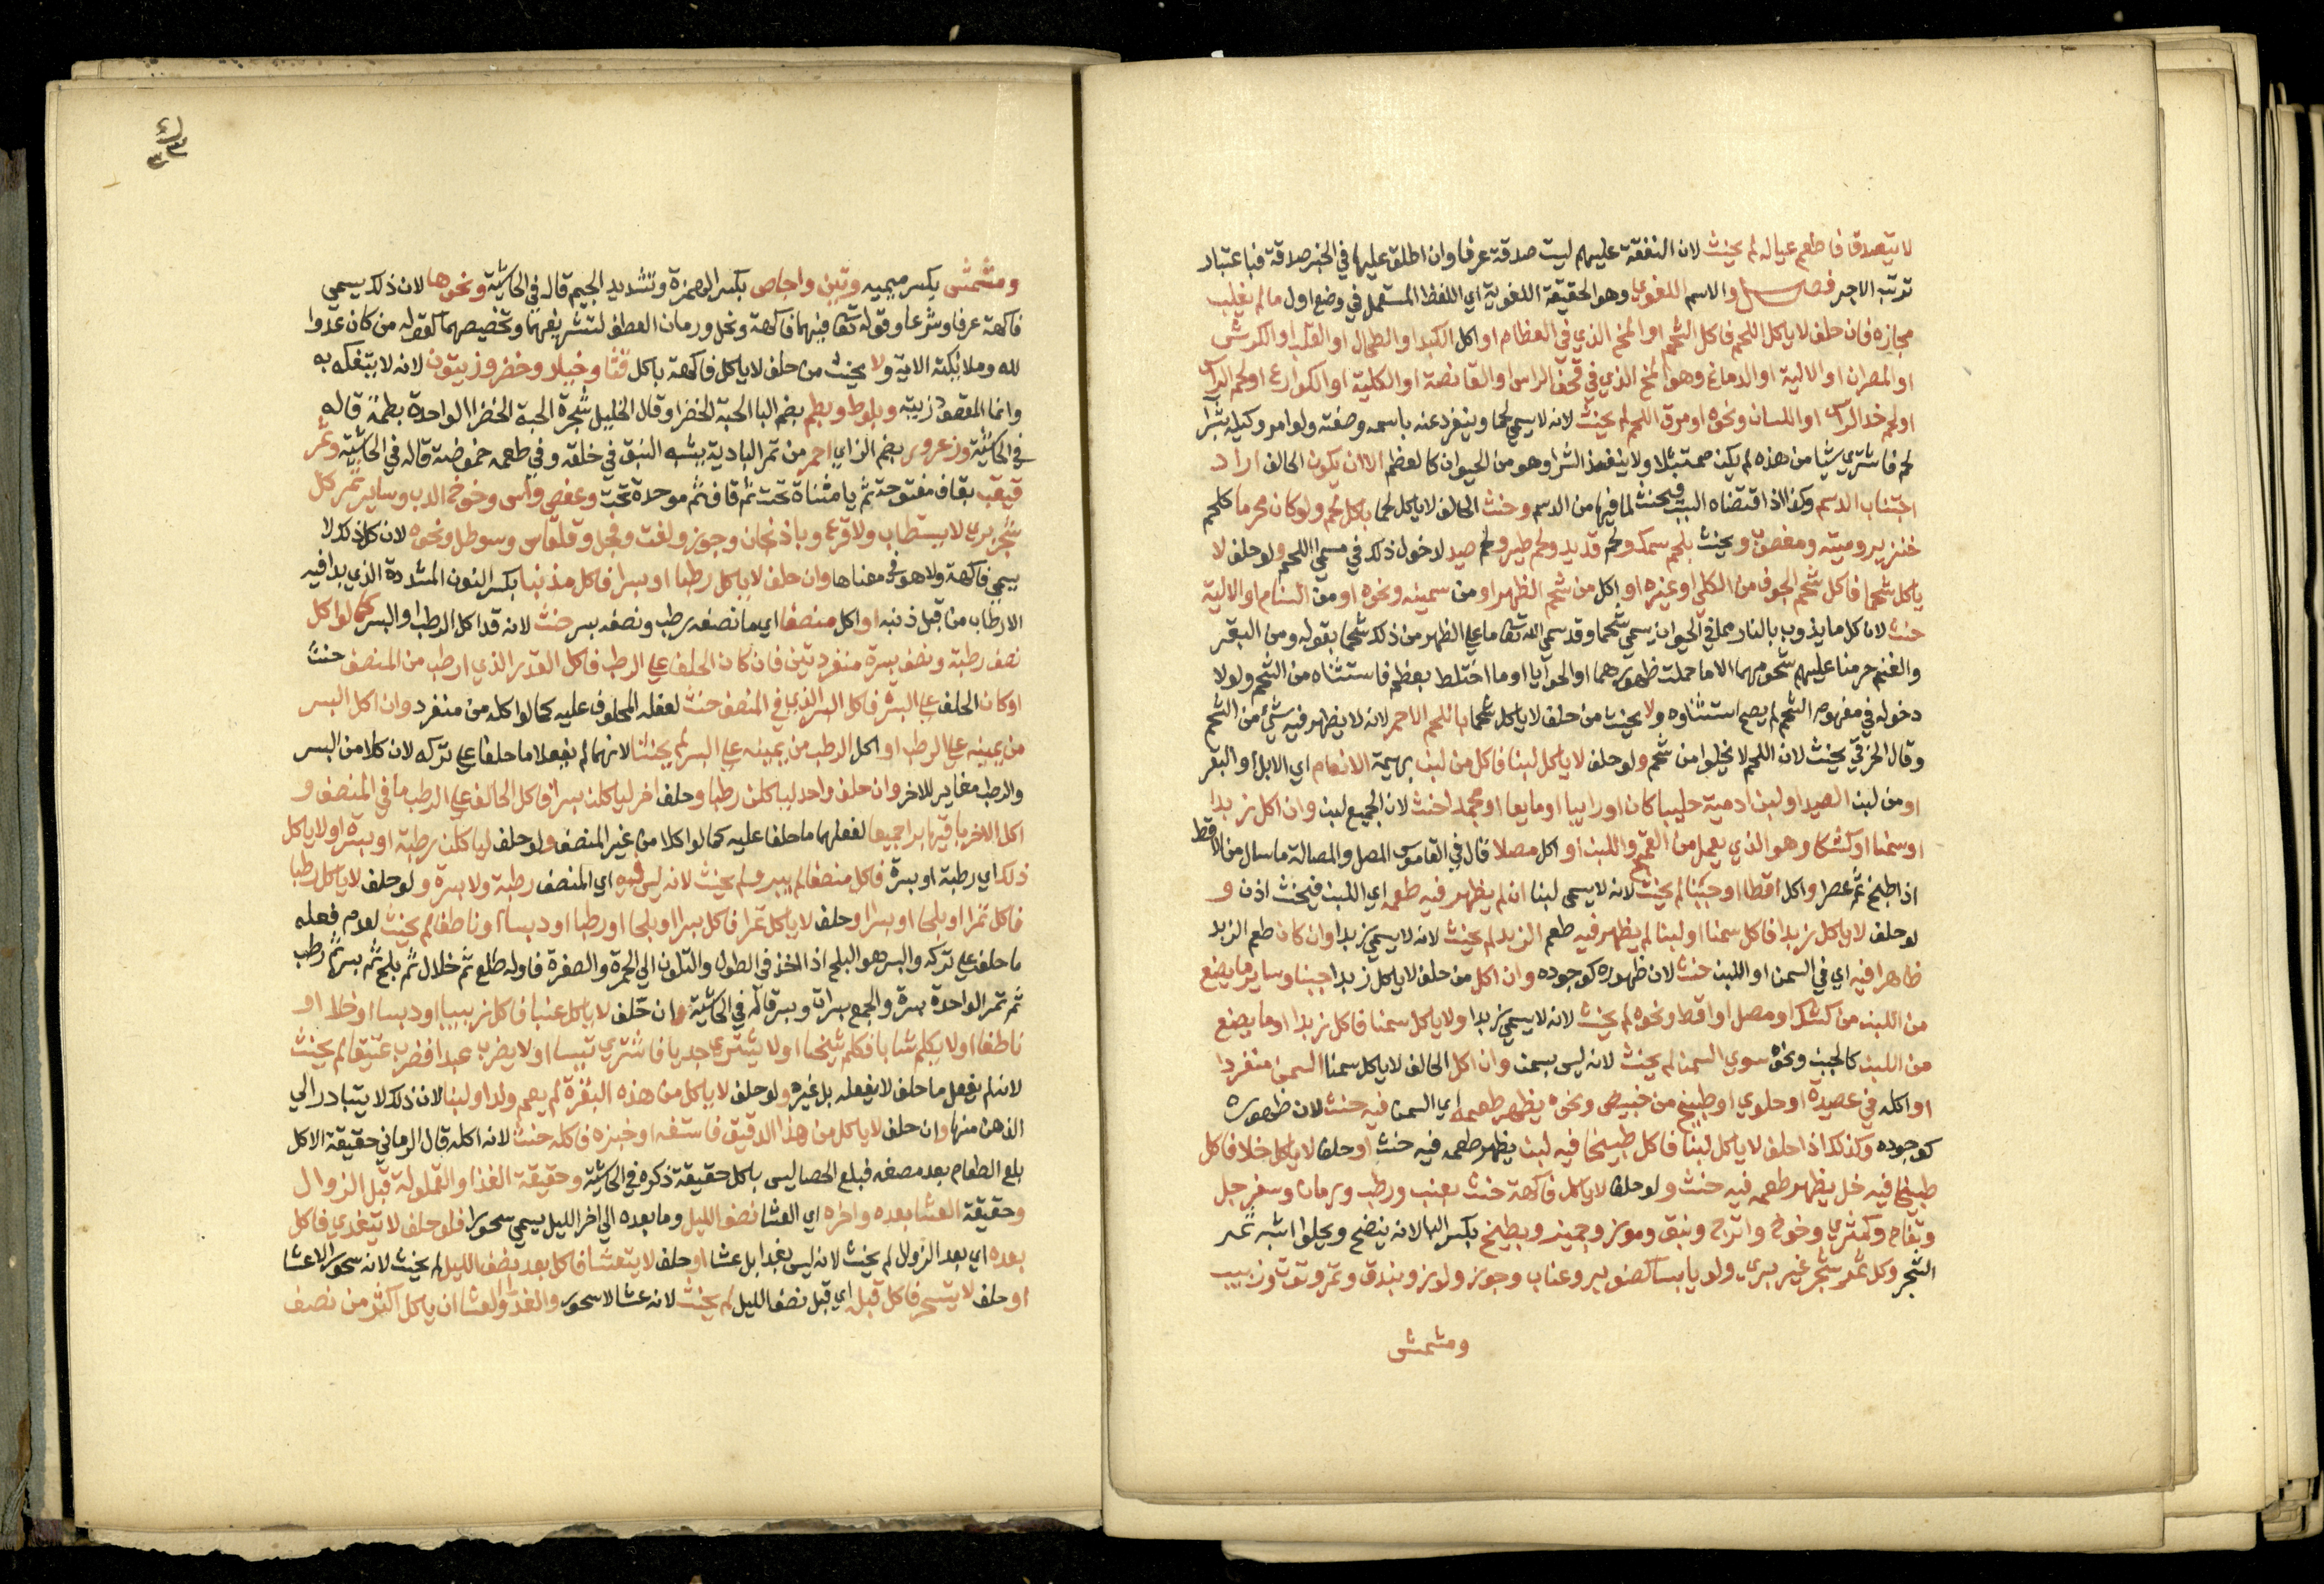 لا يتصدق فاطعم عياله لم يحنث لان النفقة عليهم ليست صدقة عرفا وان اطلق عليها في الخبر صدقة فباعتبار
ترتب الاجر فصل والاسم اللغوي وهو الحقيقة اللغوية اي اللفظ المستعمل في وضع اول ما لم يغلب
مجازه فان حلف لا ياكل اللحم فاكل الشحم او المخ الذي في العظام او اكل الكبد او الطحال او القلب او الكرش
او المصران او الالية او الدماغ وهو المخ الذي في قحف الراس او القانصة او الكلية او الكوارع او لحم الراس
او لحم خد الراس او اللسان ونحوه او مرق اللحم لم يحنث لانه لا يسمي لحما وينفرد عنه باسمه وصفته ولو امر وكيله بشرا
لحم فاشتري شيا من هذه لم يكن ممتثلا ولا ينفذ الشرا وهو من الحيوان كالعظم الا ان يكون الحالف اراد
اجتناب الدسم وكذا اذا اقتضاه السبب فيحنث لما فيها من الدسم وحنث الحالف لا ياكل لحما باكل لحم ولو كان محرما كلحم
خنزير وميتة ومغصوب ويحنث بلحم سمك ولحم قديد ولحم طير ولحم صيد لدخول ذلك في مسمي اللحم ولو حلف لا
ياكل شحما فاكل شحم الجوف من الكلي او غيره او اكل من شحم الظهر او من سمينه ونحوه او من السنام او الالية
حنث لان كل ما يذوب بالنار مما في الحيوان يسمي شحما وقد سمي الله تعا ما علي الظهر من ذلك شحما بقوله ومن البقر
والغنم حرمنا عليهم شحومهما الا ما حملت ظهورهما او الحوايا او ما اختلط بعظم فاستثناه من الشحم ولولا
دخوله في مفهوم الشحم لم يصح استثناوه ولا يحنث من حلف لا ياكل شحما باللحم الاحمر لانه لا يظهر فيه شي من الشحم
وقال الخرقي يحنث لان اللحم لا يخلوا من شحم ولو حلف لا ياكل لبنا فاكل من لبن بهيمة الانعام اي الابل او البقر
او من لبن الصيد او لبن ادمية حليبا كان او رايبا او مايعا او مجمدا حنث لان الجميع لبن وان اكل زبدا
او سمنا او كشكا وهو الذي يعمل من القمح واللبن او اكل مصلا قال في القاموس المصل والمصالة ما سال من الاقط
اذا طبخ ثم عصر او اكل اقطا او جبنا لم يحنث لانه لا يسمي لبنا ان لم يظهر فيه طعمه اي اللبن فيحنث اذن و
لو حلف لا ياكل زبدا فاكل سمنا او لبنا لم يظهر فيه طعم الزبد لم يحنث لانه لا يسمي زبدا وان كان طعم الزبد
ظاهرا فيه اي في السمن او اللبن حنث لان ظهوره كوجوده وان اكل من حلف لا ياكل زبدا جبنا وساير ما يصنع
من اللبن من كشك او مصل او اقط ونحوه لم يحنث لانه لا يسمي زبدا ولا ياكل سمنا فاكل زبدا او ما يصنع
من اللبن كالجبن ونحوه سوي السمن لم يحنث لانه ليس بسمن وان اكل الحالف لا ياكل سمنا السمن منفردا
او اكله في عصيدة او حلوي او طبيخ من خبيص ونحوه يظهر طعمه اي السمن فيه حنث لان ظهوره
كوجوده وكذلك اذا حلف لا ياكل لبنا فاكل طبيخا فيه لبن يظهر طعمه فيه حنث او حلف لا ياكل خلا فاكل
طبيخا فيه خل يظهر طعمه فيه حنث ولو حلف لا ياكل فاكهة حنث بعنب ورطب ورمان وسفرجل
وتفاح وكمثري وخوخ واترج ونبق وموز وجميز وبطيخ بكسر البا لانه ينضج ويحلوا اشبه ثمر
الشجر وكل ثمر شجر غير بري ولو يابسا كصنوبر وعناب وجوز ولوز وبندق وتمر وتوت وزبيب
ومشمش
ومشمش بكسر ميميه وتين واجاص بكسر الهمزة وتشديد الجيم قاله في الحاشية ونحوها لان ذلك يسمي
فاكهة عرفا وشرعا وقوله تعا فيهما فاكهة ونخل ورمان العطف لتشريفهما وتخصيصهما كقوله من كان عدوا
لله وملائكته الاية ولا يحنث من حلف لا ياكل فاكهة باكل قثا وخيار وخضر وزيتون لانه لا يتفكه به
وانما المقصود زيته وبلوط وبطم بضم البا الحبة الخضرا وقال الخليل شجرة الحبة الخضرا الواحدة بطمة قاله
في الحاشية وزعرور بضم الزاي احمر من تمر البادية يشبه النبق في خلقه وفي طعمه حموضة قاله في الحاشية وثمر
قيقب بقاف مفتوحة ثم يا مثناة تحت ثم قاف ثم موحدة تحت وعفص واس وخوخ الدب وساير ثمر كل
شجر بري لا يستطاب ولا قرع وباذنجان وجوز ولفت وفجل وقلقاس وسوطل ونحوه لان كل ذلك لا
يسمي فاكهة ولا هو في معناها وان حلف لا ياكل رطبا او بسرا فاكل مذنبا بكسر النون المشددة الذي بدا فيه
الارطاب من قبل ذنبه او اكل منصفا اي ما نصفه رطب ونصفه بسر حنث لانه قد اكل الرطب والبسر كما لو اكل
نصف رطبة ونصف بسرة منفردتين فان كان الحلف علي الرطب فاكل القدر الذي ارطب من المنصف حنث
او كان الحلف علي البسر فاكل البسر الذي في المنصف حنث لفعله المحلوف عليه كما لو اكله من منفرد وان اكل البسر
من يمينه علي الرطب او اكل الرطب من يمينه علي البسر لم يحنثا لانهما لم يفعلا ما حلفا علي تركه لان كلا من البسر
والرطب مغاير للاخر وان حلف واحد لياكلن رطبا وحلف اخر لياكلن بسرا فاكل الحالف علي الرطب ما في المنصف و
اكل الاخر باقيها برا جميعا لفعلهما ما حلفا عليه كما لو اكلا من غير المنصف ولو حلف لياكلن رطبة او بسرة او لا ياكل
ذلك اي رطبة او بسرة فاكل منصفا لم يبر ولم يحنث لانه ليس فيه اي المنصف رطبة ولا بسرة ولو حلف لا ياكل رطبا
فاكل تمرا او بلحا او بسرا او حلف لا ياكل تمرا فاكل بسرا او بلحا او رطبا او دبسا او ناطفا لم يحنث لعدم فعله
ما حلف علي تركه والبسر هو البلح اذا اخذ في الطول والتلون الي الحمرة والصفرة فاوله طلع ثم خلال ثم بلح ثم بسر ثم رطب
ثم تمر الواحدة بسرة والجمع بسرات وبسر قاله في الحاشية وان حلف لا ياكل عنبا فاكل زبيبا او دبسا او خلا او
ناطفا او لا يكلم شابا فكلم شيخا او لا يشتري جديا فاشتري تيسا او لا يضرب عبدا فضرب عتيقا لم يحنث
لانه لم يفعل ما حلف لا يفعله بل غيره ولو حلف لا ياكل من هذه البقرة لم يعم ولدا ولبنا لان ذلك لا يتبادر الي
الذهن منها وان حلف لا ياكل من هذا الدقيق فاستفه او خبزه فاكله حنث لانه اكله قال الرماني حقيقة الاكل
بلع الطعام بعد مضغه فبلع الحصا ليس باكل حقيقة ذكره في الحاشية وحقيقة الغذا والقيلولة قبل الزوال
وحقيقة العشا بعده واخره اي العشا نصف الليل وما بعده الي اخر الليل يسمي سحورا فلو حلف لا يتغدي فاكل
بعده اي بعد الزوال لم يحنث لانه ليس بغدا بل عشا او حلف لا يتعشا فاكل بعد نصف الليل لم يحنث لانه سحور لا عشا
او حلف لا يتسحر فاكل قبله اي قبل نصف الليل لم يحنث لانه عشا لا سحور والغدا والعشا ان ياكل اكثر من نصف